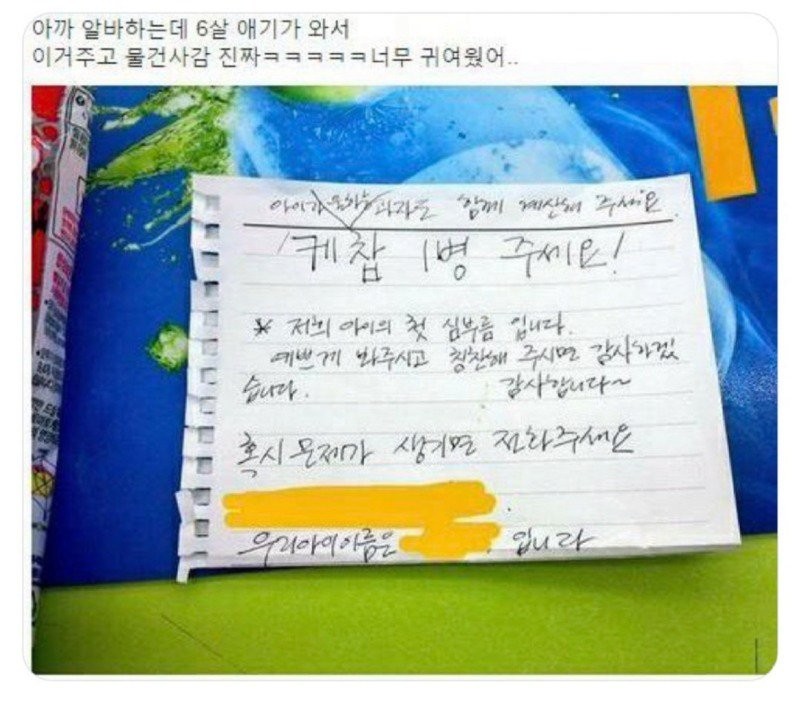 아까 알바하는데 6살 애기가 와서
이거주고 물건사감 진짜ㅋㅋㅋㅋㅋ너무 귀여웠어..
아이가 원하는 과자도 함께 계산해 주세요.
케찹 1병 주세요!
※ 저희 아이의 첫 심부름 입니다.
예쁘게 봐주시고 칭찬해 주시면 감사하겠
습니다. 감사합니다~
혹시 문제가 생기면 전화주세요
우리아이이름은 입니다